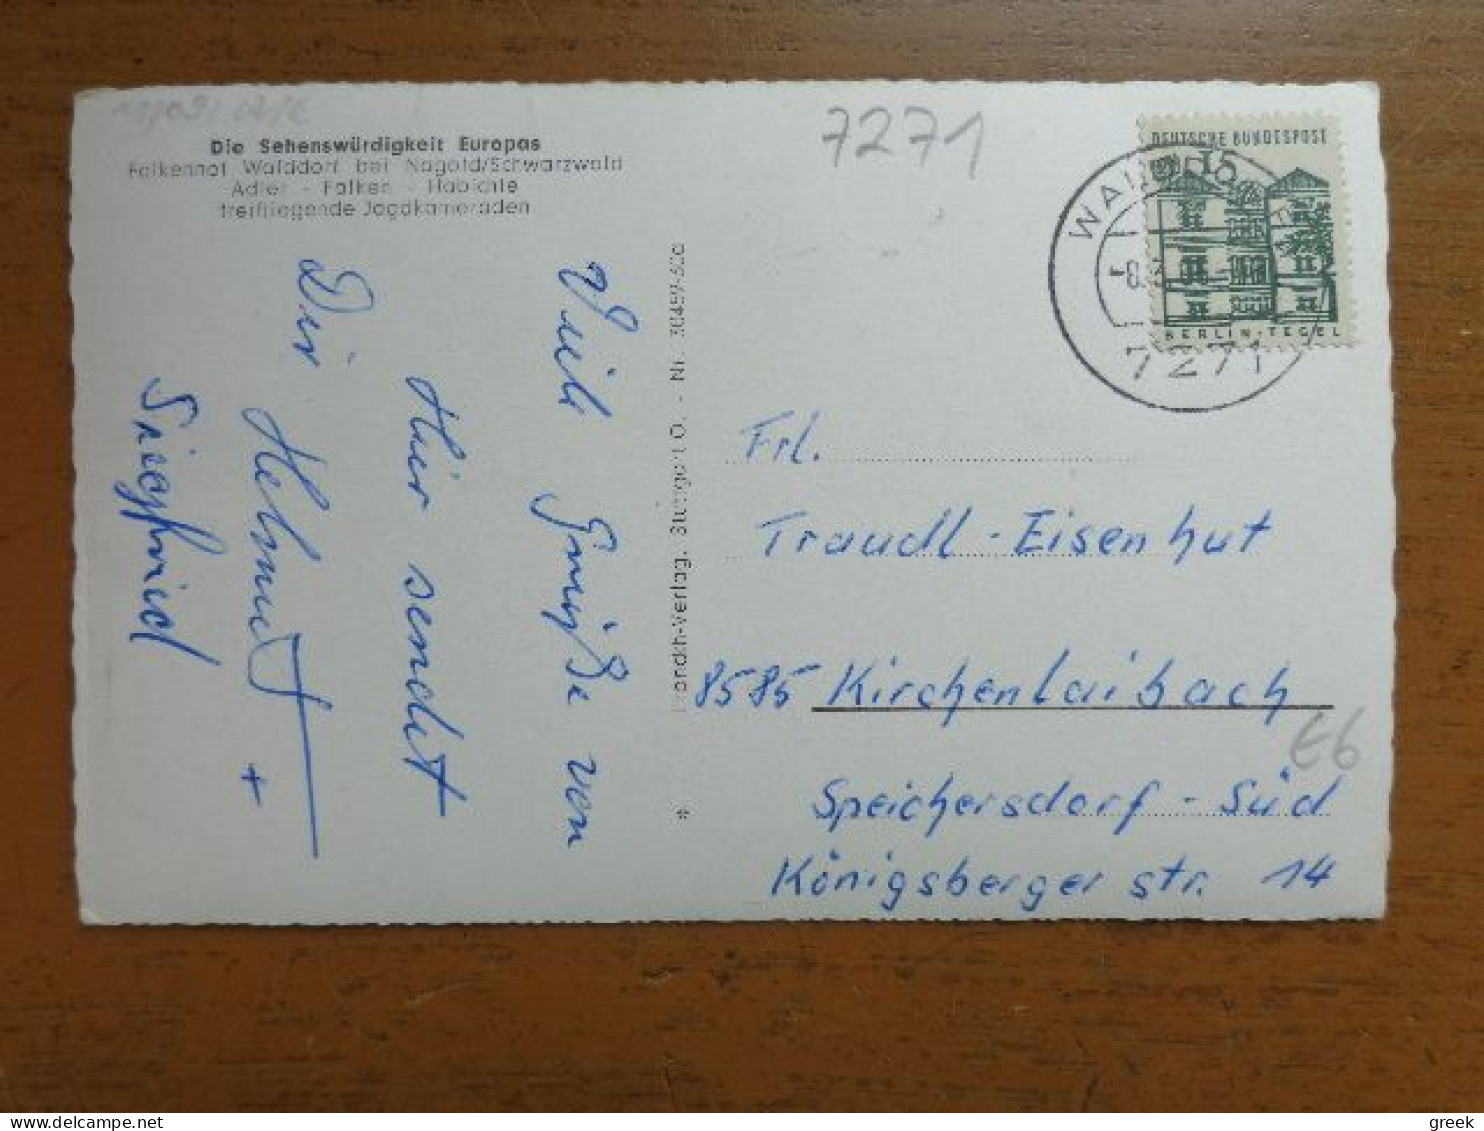 Die Sehenswürdigkeit Europas
Falkenhof Walddorf bei Nagold/Schwarzwald
Adler - Falken - Habichte
freifliegende Jagdkameraden
7271
DEUTSCHE BUNDESPOST
15
BERLIN-TEGEL
7271
Viele Grüße von
Hier sendet
Dir Helmut +
Siegfried
andkh-Verlag, Stuttgart O. - Nr.
Frl.
Traudl-Eisenhut
8585 Kirchenlaibach
Speichersdorf-Süd
Königsberger str. 14
€6
greek